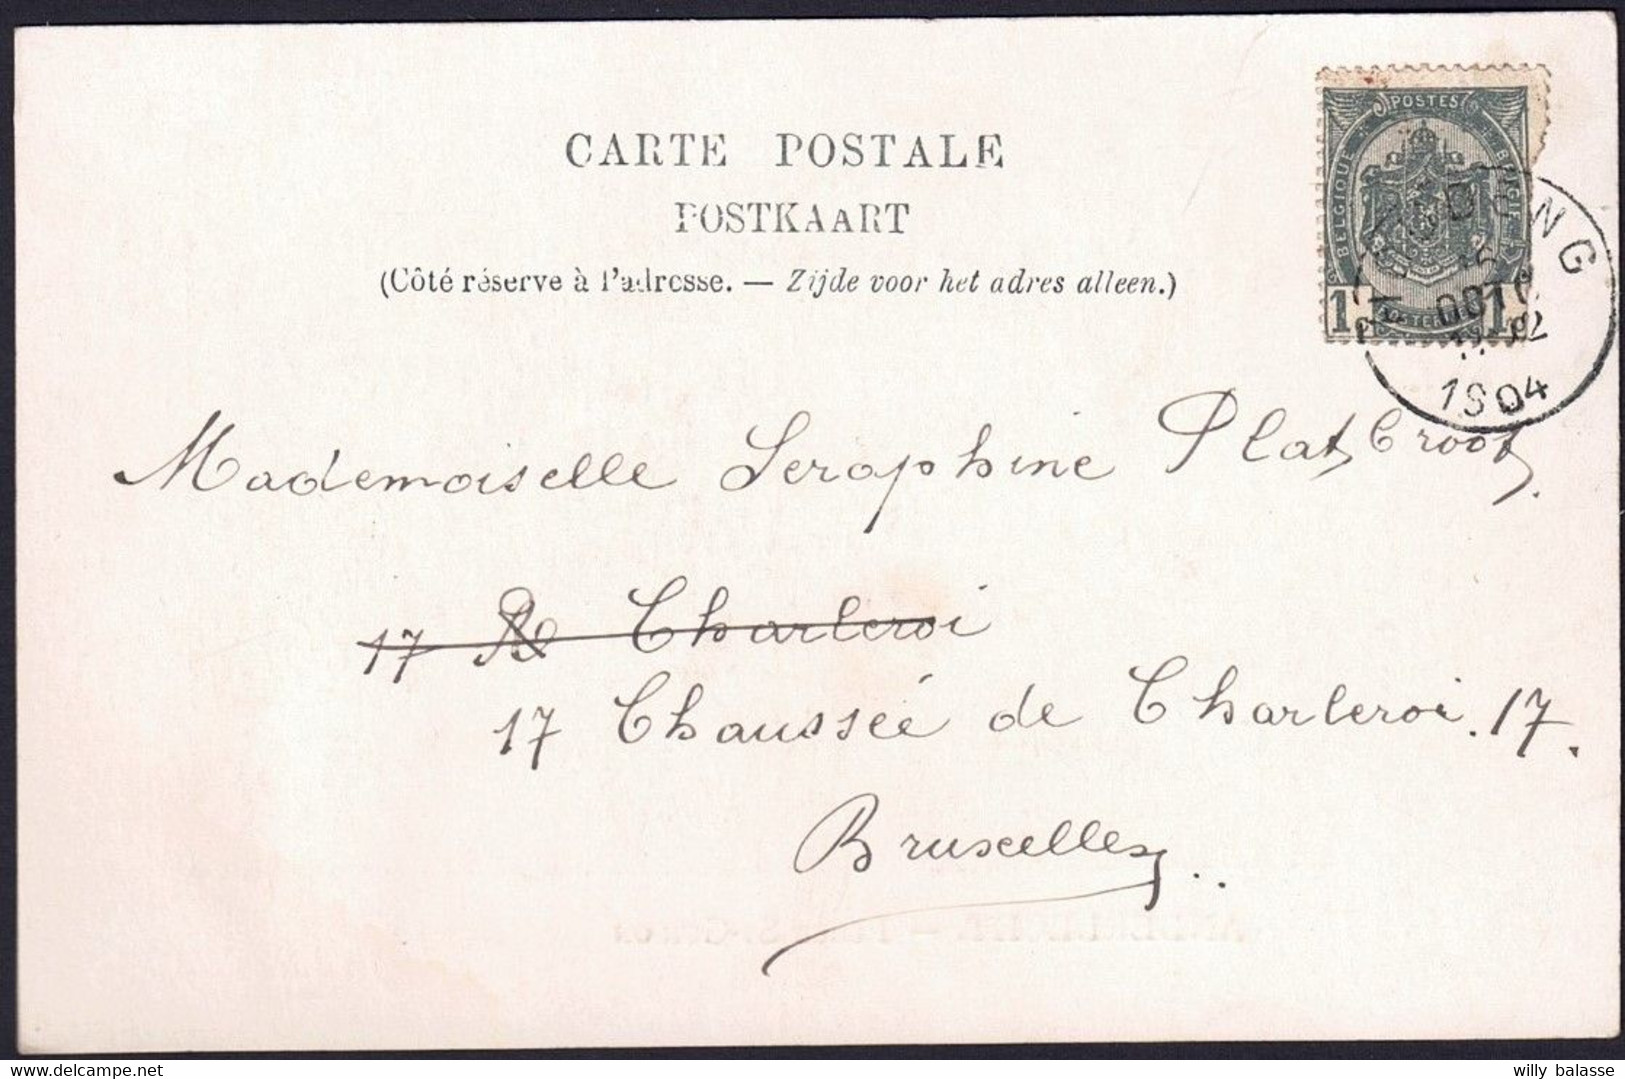 CARTE POSTALE
POSTKAART
(Côté réserve à l'adresse. — Zijde voor het adres alleen.)
POSTES
BELGIQUE
BELGIË
1 1
OCT
1904
Mademoiselle Seraphine Platbroot
17 Charleroi
17 Chaussée de Charleroi. 17.
Bruxelles
willy balasse